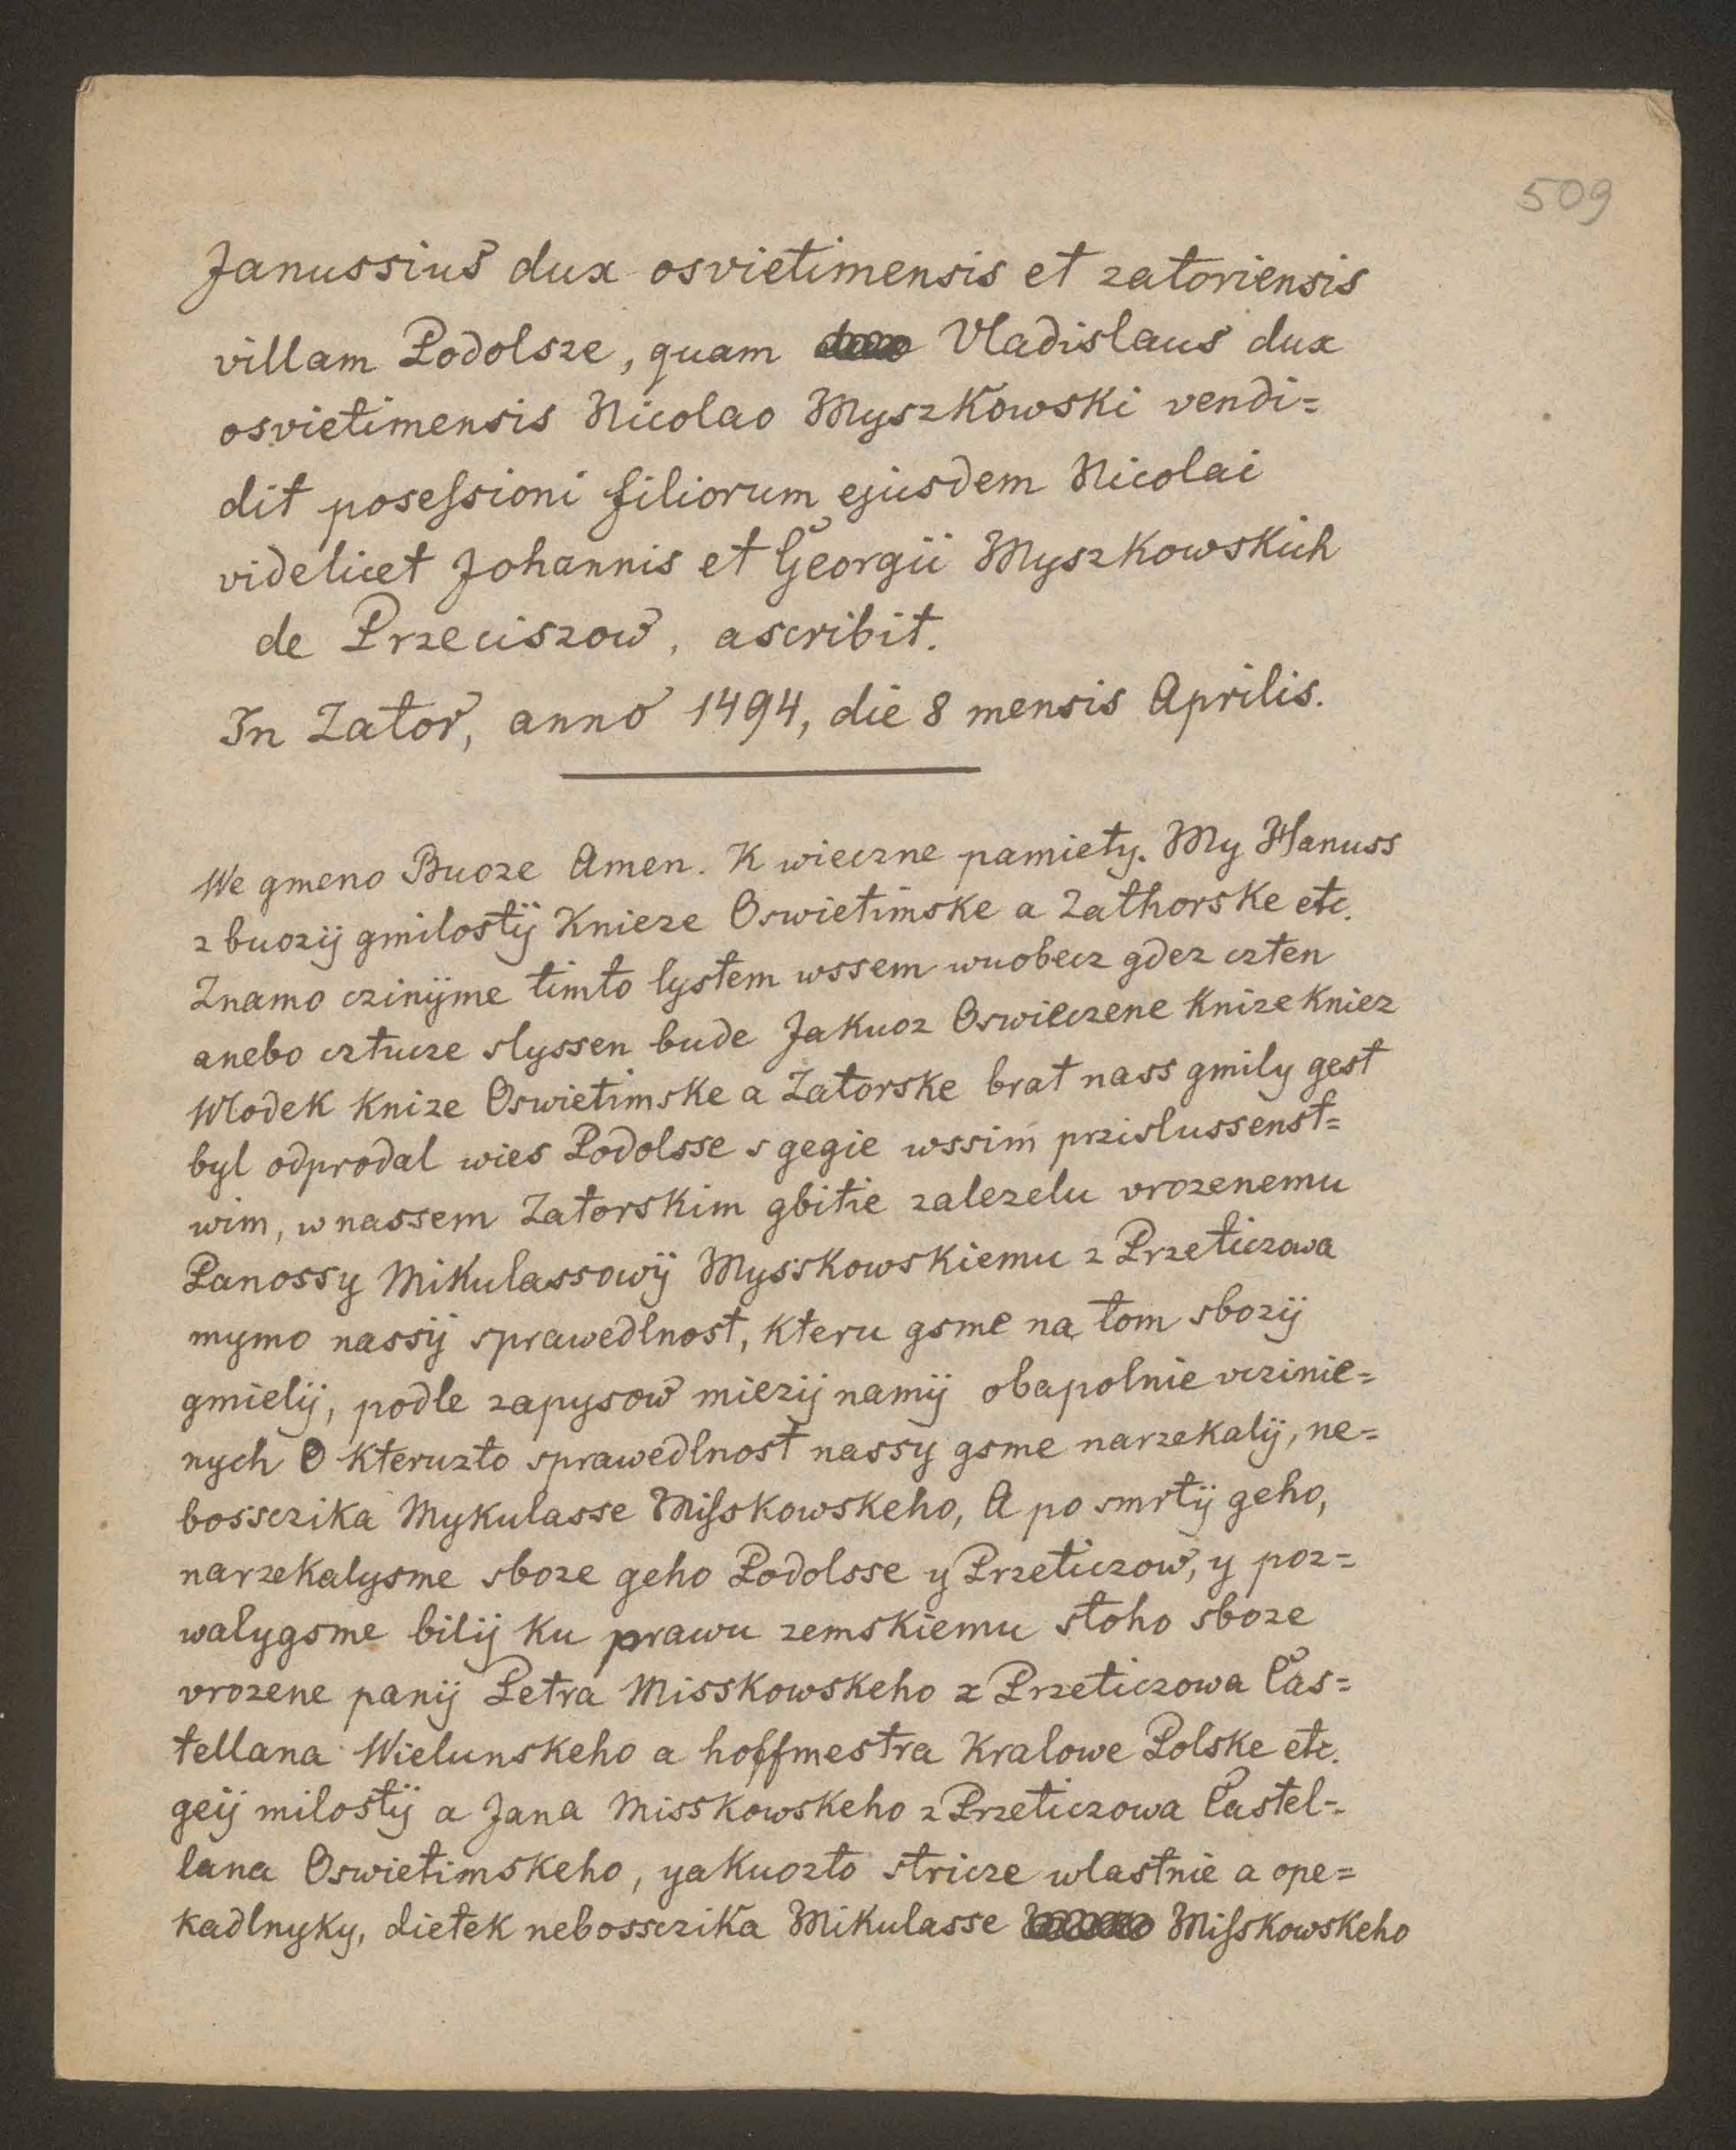 509
Janussius dux osvietimensis et zatoriensis
villam Podolsze, quam Vladislaus dux
osvietimensis Nicolao Myszkowski vendi=
dit posessioni filiorum ejusdem Nicolai
videlicet Johannis et Georgii Myszkowskich
de Przeciszow, ascribit.
In Zator, anno 1494, die 8 mensis Aprilis.
We gmeno Buoze Amen. K wieczne pamiety. My Hanuss
z buozij gmilostij Knieze Oswietimske a Zathorske etc.
Znamo czinijme timto lystem wssem wuobecz gdez czten
anebo cztucze slyssen bude Jakuoz Oswieczene Knize Kniez
Wlodek Knize Oswietimske a Zatorske brat nass gmily gest
byl odprodal wies Podolsse s gegie wssim przislussenst=
wim, w nassem Zatorskim gbitie zalezelu vrozenemu
Panossy Mikulassowij Mysskowskiemu z Przeticzowa
mymo nassij sprawedlnost, kteru gsme na tom sbozij
gmielij, podle zapysow miezij namij obapolnie vczinie=
nych O kteruzto sprawedlnost nassy gsme narzekalij, ne=
bossczika Mykulasse Misskowskeho, A po smrtij geho,
narzekalysme sboze geho Podolsse y Przeticzow, y poz=
walygsme bilij ku prawu zemskiemu stoho sboze
vrozene panij Petra Misskowskeho z Przeticzowa Cas=
tellana Wielunskeho a hoffmestra Kralowe Polske etc.
geij milostij a Jana Misskowskeho z Przeticzowa Castel=
lana Oswietimskeho, yakuozto stricze wlastnie a ope=
kadlnyky, dietek nebossczika Mikulasse Misskowskeho